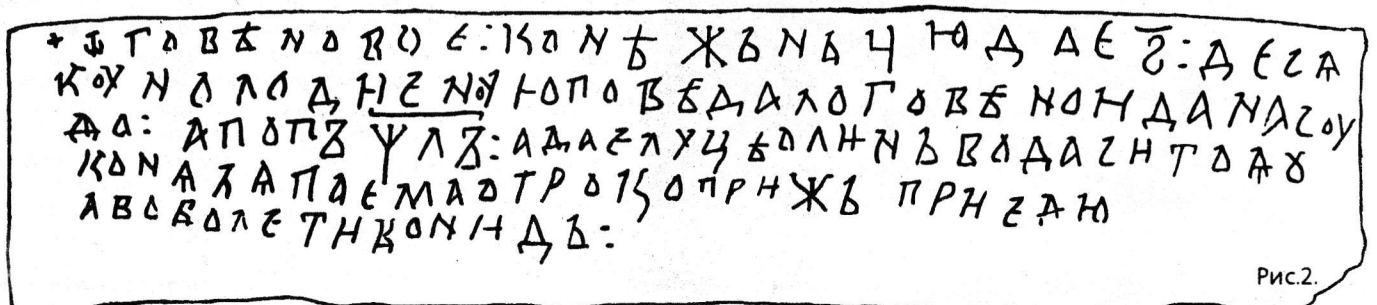 + ѾГОВѢNОВОЕ:КОNѢЖЬNЬЦЮДДЕꙀ:ДЕСА
КОУNОЛОДИЕNОУЮПОВѢДАЛОГОВѢNОИДАNАСОУ
ДА:АПОПЪѰЛЪ:АДАЕЛУЦѢОЛИNЬВОДАСИТОДУ
КОNАЗАПОЕМАОТРОКОПРИЖЬПРИЕДЮ
АВОБОЛЕТИКОNИДЬ:
Рис.2.